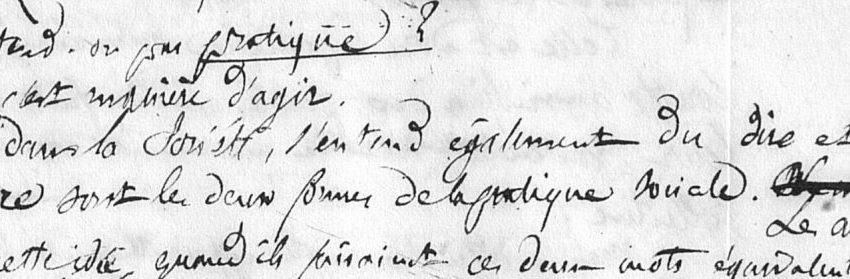 tend-on par pratique ?
c'est manière d'agir.
dans la Société, s'entend également du dire et
re sont les deux formes de la pratique sociale.
Les a
cette idée, quand ils faisaient ces deux mots équivalent